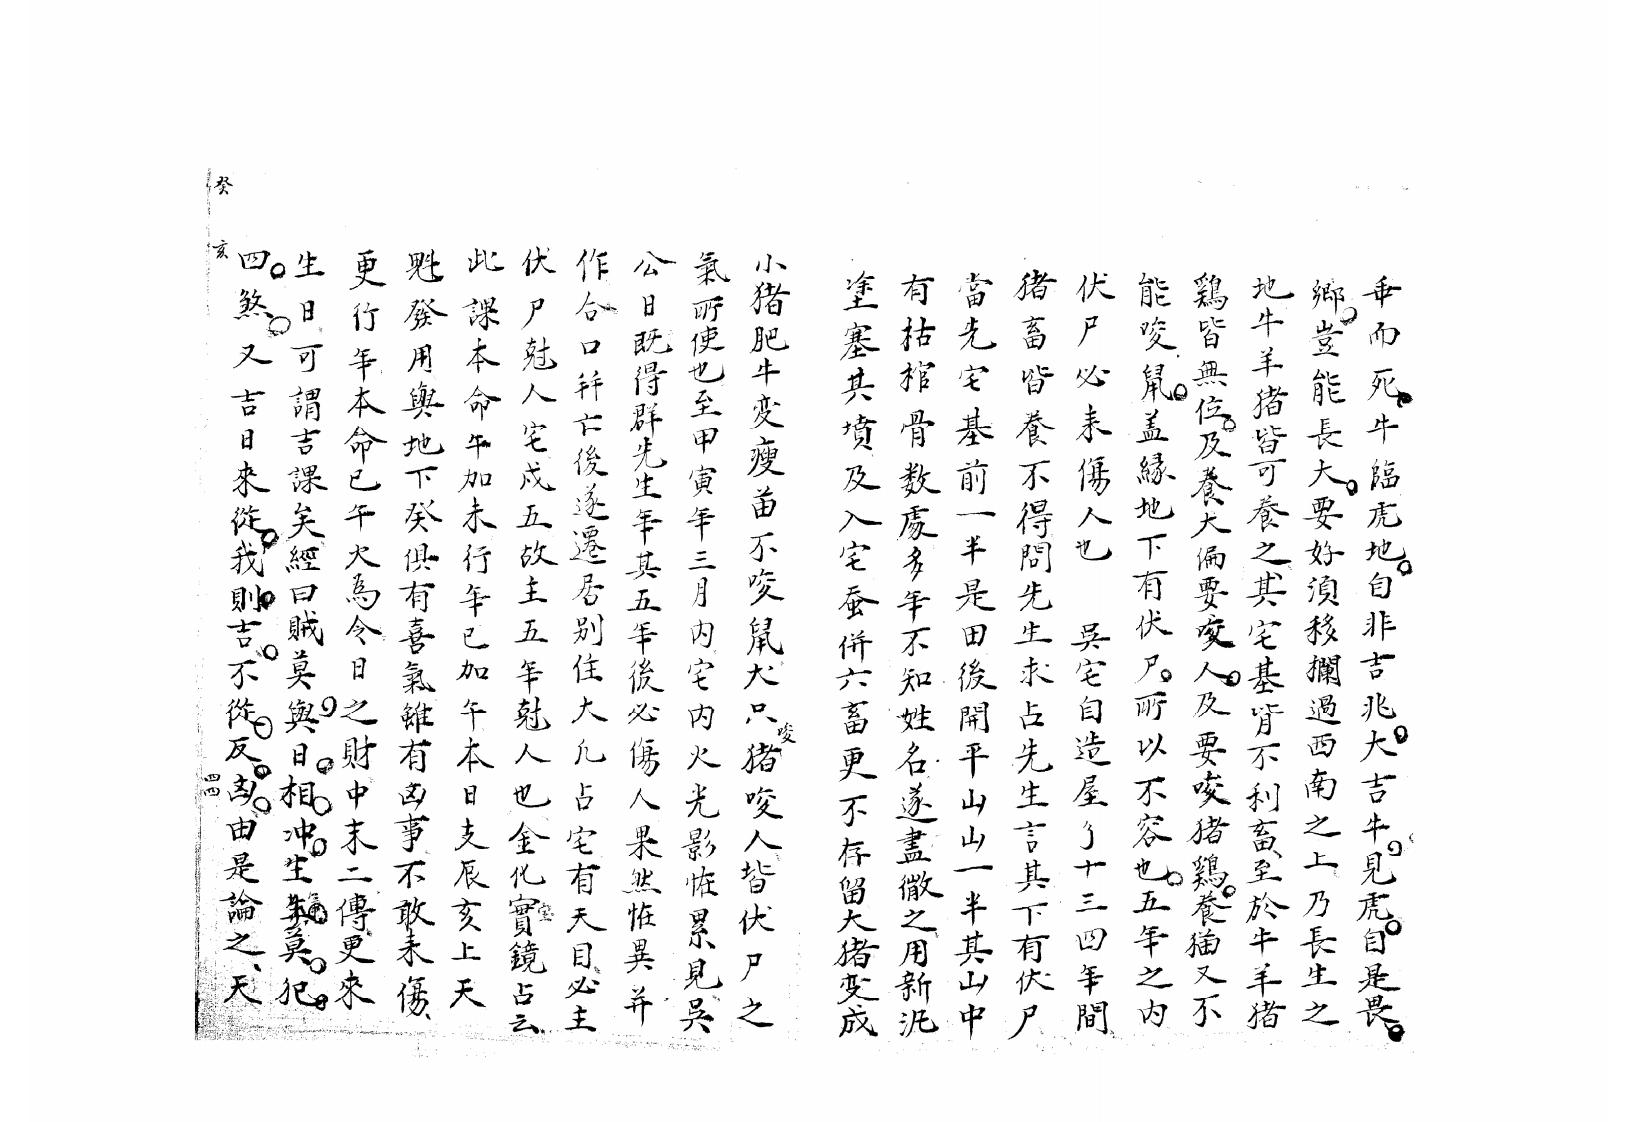 垂而死牛臨虎地自非吉兆大吉牛見虎自是畏
鄉豈能長大要好須移攔過西南之上乃長生之
地牛羊猪皆可養之其宅基皆不利畜至於牛羊猪
鷄皆無位及養犬偏要咬人及要咬猪鷄養猫又不
能咬鼠盖緣地下有伏尸所以不容也五年之內
伏尸必来傷人也　吳宅自造屋了十三四年間
猪畜皆養不得問先生求占先生言其下有伏尸
當先宅基前一半是田後開平山山一半其山中
有枯棺骨数處多年不知姓名遂盡徹之用新泥
塗塞其墳及入宅蚕併六畜更不存留大猪变成
小猪肥牛变瘦苗不咬鼠犬只咬猪咬人皆伏尸之
氣所使也至甲寅年三月內宅內火光影恠累見吳
公日既得群先生年其五年後必傷人果然恠異并
作合口并亡後遂遷居別住大凢占宅有天目必主
伏尸尅人宅戍五故主五年尅人也金化寳鏡占云
此課本命午加未行年巳加午本日支辰亥上天
魁發用與地下癸俱有喜氣雖有凶事不敢来傷
更行年本命巳午火為今日之財中末二傳更來
生日可謂吉課矣經曰賊莫與日相冲生莫犯
四煞又吉日來從我則吉不從反凶由是論之天
癸亥
四四